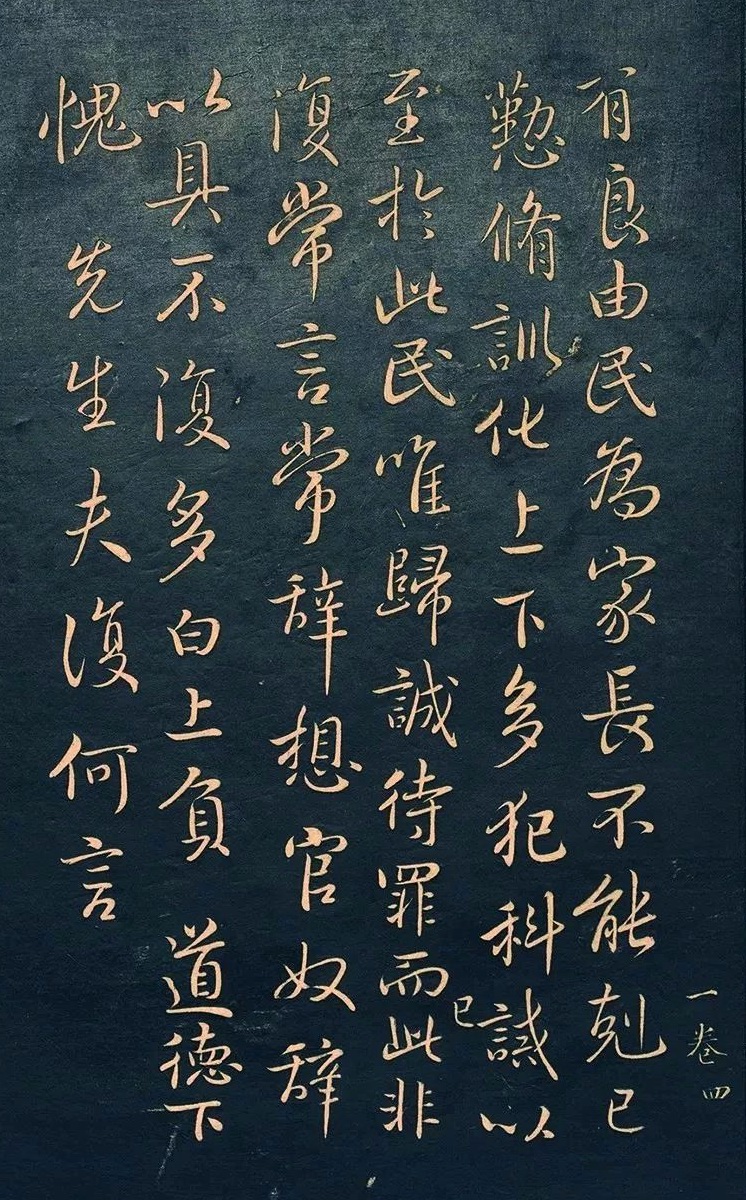 一卷四
有良由民為家長不能剋己
懃脩訓化上下多犯科誡以
至於此民唯歸誠待罪而已此非
復常言常辞想官奴辞
以具不復多白上負 道德下
愧 先生夫復何言